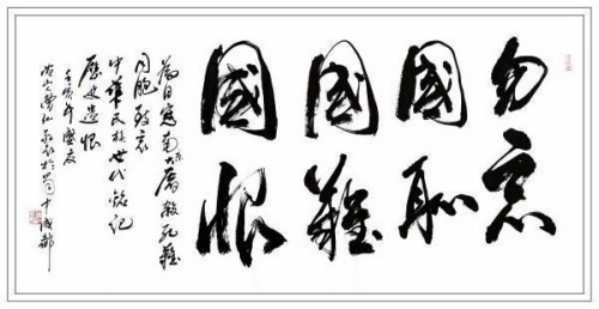 勿忘
國恥
國難
國恨
為日寇南京大屠殺死難
同胞致哀
中華民族世代銘記
歷史遺恨
壬寅年盛夏
於蜀中成都